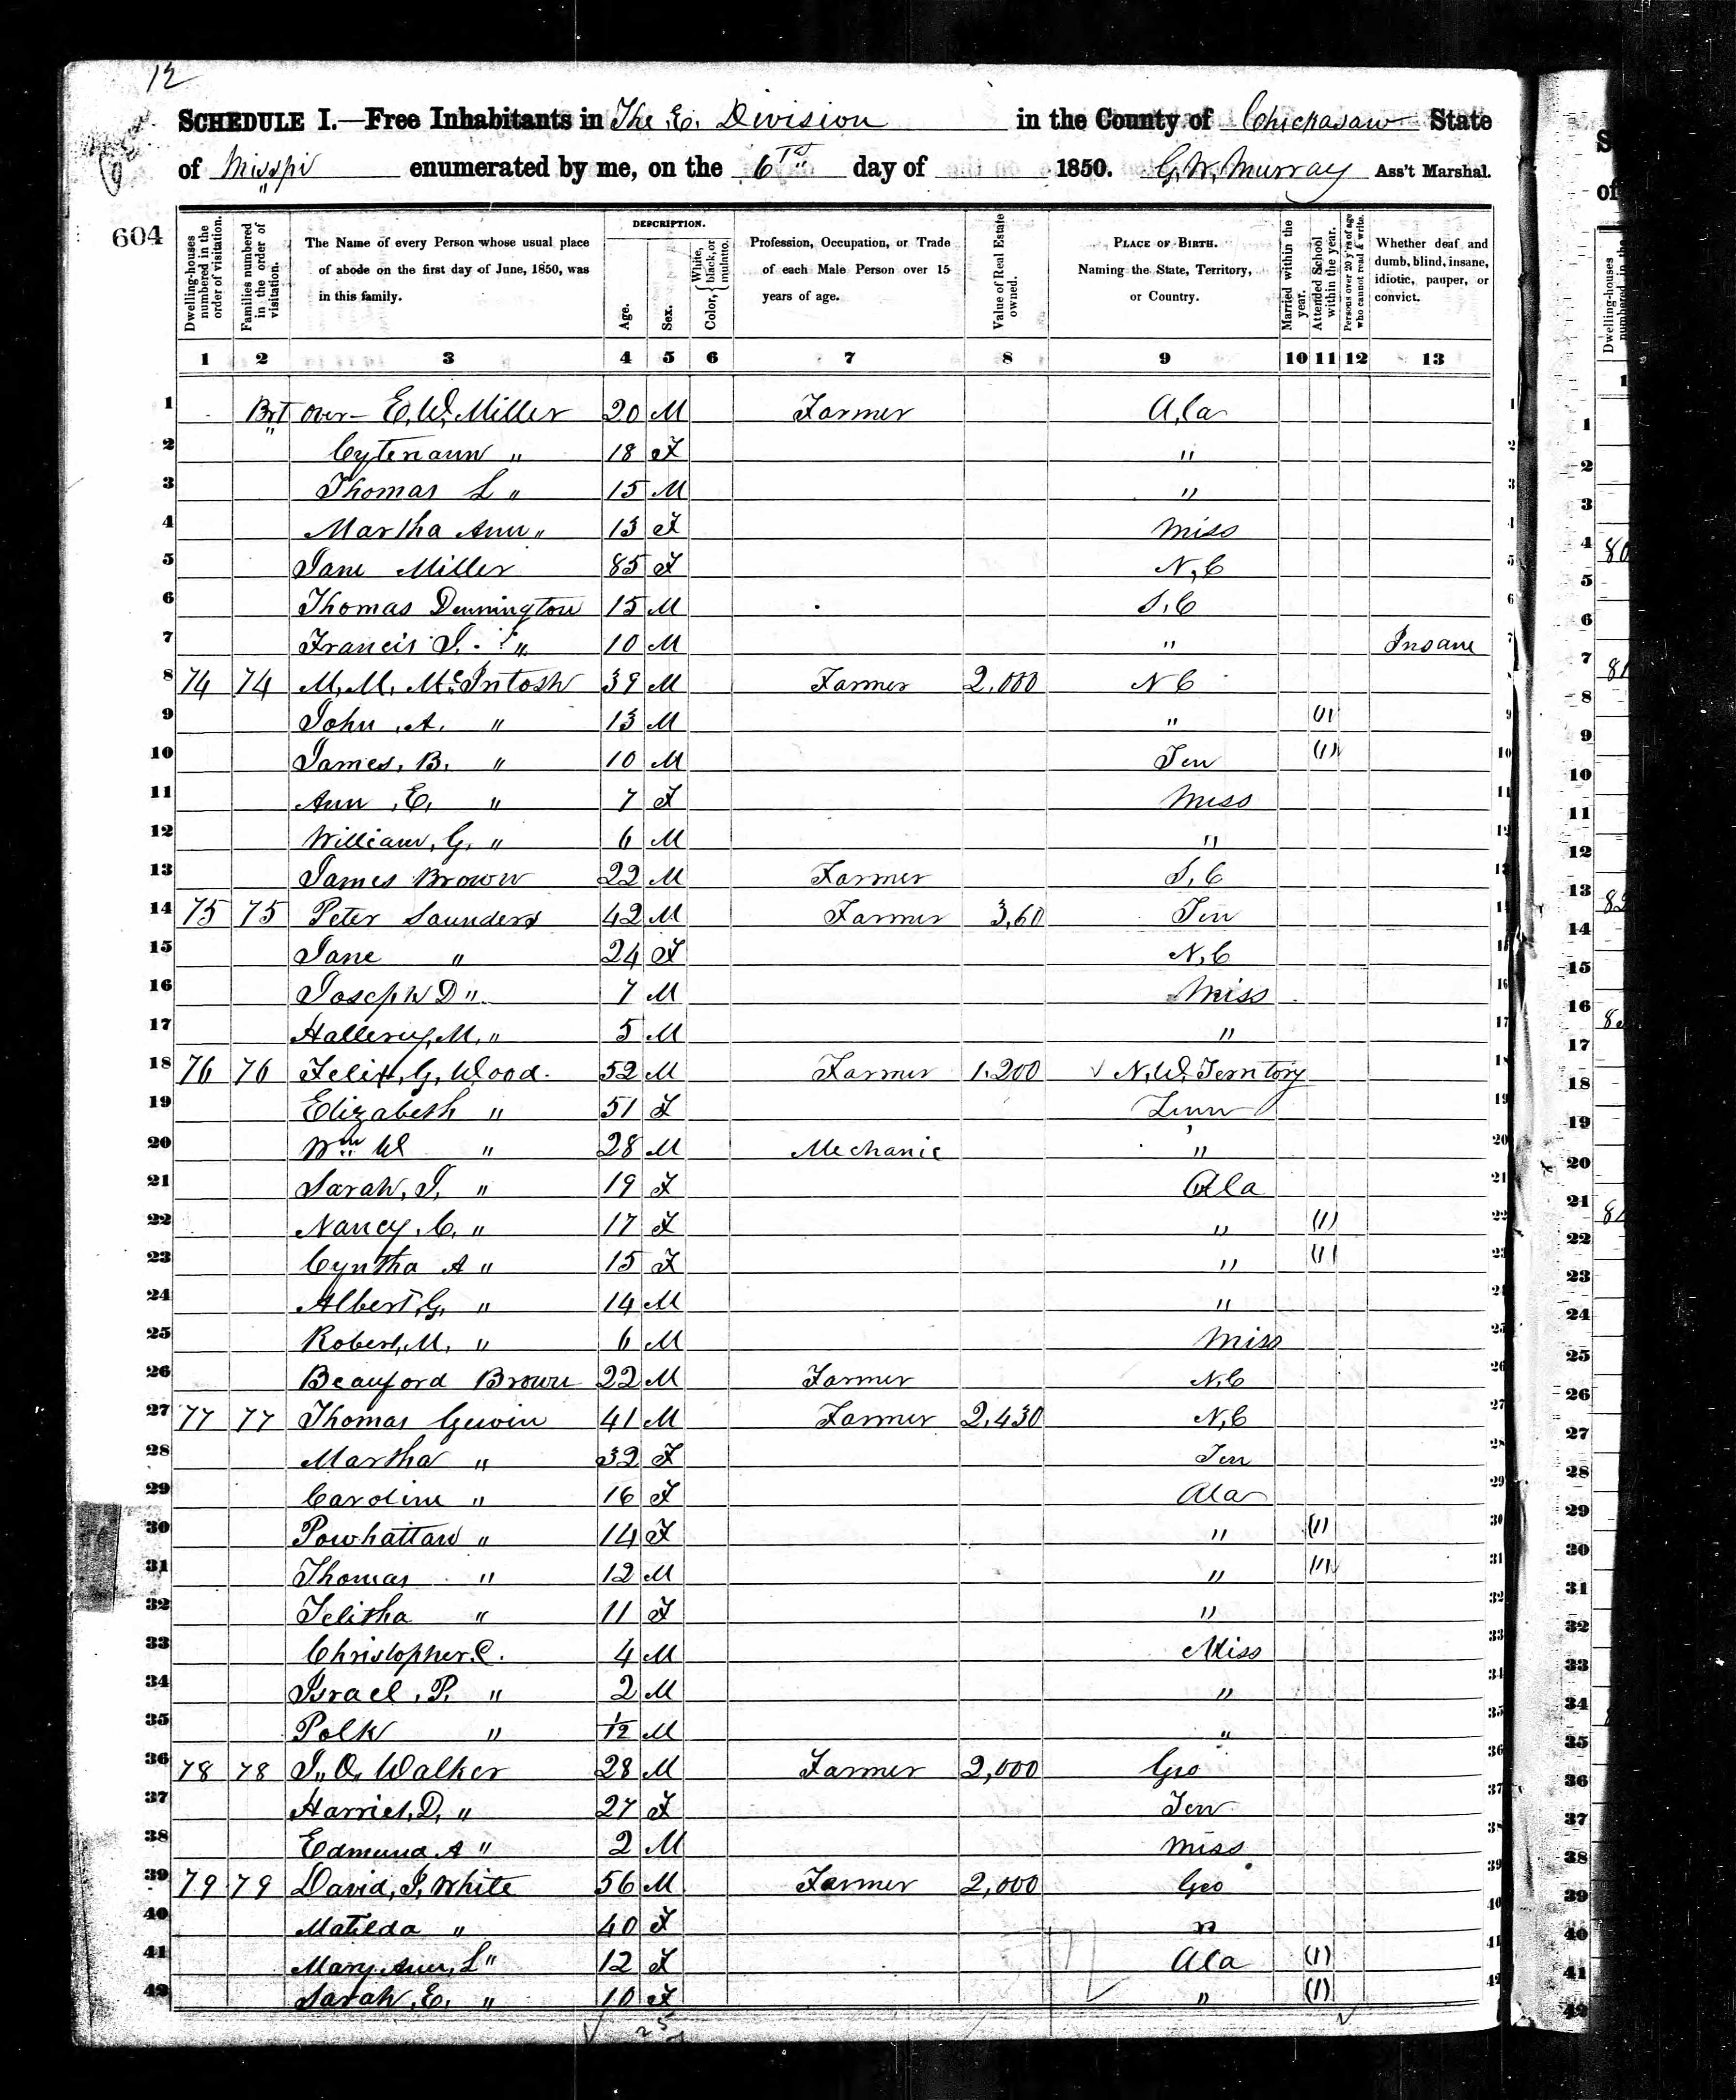 12
SCHEDULE I.—Free Inhabitants in The E. Division in the County of Chickasaw State
of Misspi enumerated by me, on the 6th day of 1850. G. W. Murray Ass't Marshal.
604
Dwelling-houses numbered in the order of visitation.
Families numbered in the order of visitation.
The Name of every Person whose usual place of abode on the first day of June, 1850, was in this family.
DESCRIPTION.
Age.
Sex.
Color, { White, black, or mulatto.
Profession, Occupation, or Trade of each Male Person over 15 years of age.
Value of Real Estate owned.
PLACE OF BIRTH. Naming the State, Territory, or Country.
Married within the year.
Attended School within the year.
Persons over 20 y'rs of age who cannot read & write.
Whether deaf and dumb, blind, insane, idiotic, pauper, or convict.
1 2 3 4 5 6 7 8 9 10 11 12 13
1 Brt over — E. W. Miller 20 M Farmer Ala 1
2 " 18 F " 2
3 Thomas L " 15 M " 3
4 Martha Ann " 13 F Miss 4
5 Jane Miller 85 F N, C 5
6 Thomas Dennington 15 M S, C 6
7 Francis J. " 10 M " Insane 7
8 74 74 M. M. McIntosh 39 M Farmer 2,000 N C
9 John, A. " 13 M " (1) 9
10 James, B. " 10 M Ten (1) 10
11 Ann, E, " 7 F Miss 11
12 William, G, " 6 M " 12
13 James Brown 22 M Farmer S, C 13
14 75 75 Peter Saunders 42 M Farmer 3,60 Ten 14
15 Jane " 24 F N, C 15
16 Joseph D " 7 M Miss 16
17 M, " 5 M " 17
18 76 76 Felix, G, Wood. 52 M Farmer 1.200 √ N. W. Territory 18
19 Elizabeth " 51 F Tenn 19
20 Wm W " 28 M Mechanic " 20
21 Sarah, J, " 19 F Ala 21
22 Nancy, C, " 17 F " (1) 22
23 Cyntha A " 15 F " (1) 23
24 Albert, G, " 14 M " 24
25 Robert, M, " 6 M Miss 25
26 Beauford Brown 22 M Farmer N, C 26
27 77 77 Thomas Gewin 41 M Farmer 2,430 N, C 27
28 Martha " 32 F Ten 28
29 Caroline " 16 F Ala 29
30 Powhattan " 14 F " (1) 30
31 Thomas " 12 M " (1) 31
32 Telitha " 11 F " 32
33 Christopher, C. 4 M Miss 33
34 Israel, P. " 2 M " 34
35 Polk " 1/12 M " 35
36 78 78 J, O, Walker 28 M Farmer 2,000 Geo 36
37 Harriet, D, " 27 F Ten 37
38 Edmund A " 2 M Miss 38
39 79 79 David, J, White 56 M Farmer 2,000 Geo 39
40 Matilda " 40 F " 40
41 Mary Ann, L " 12 F Ala (1) 41
42 Sarah, E, " 10 F " (1) 42